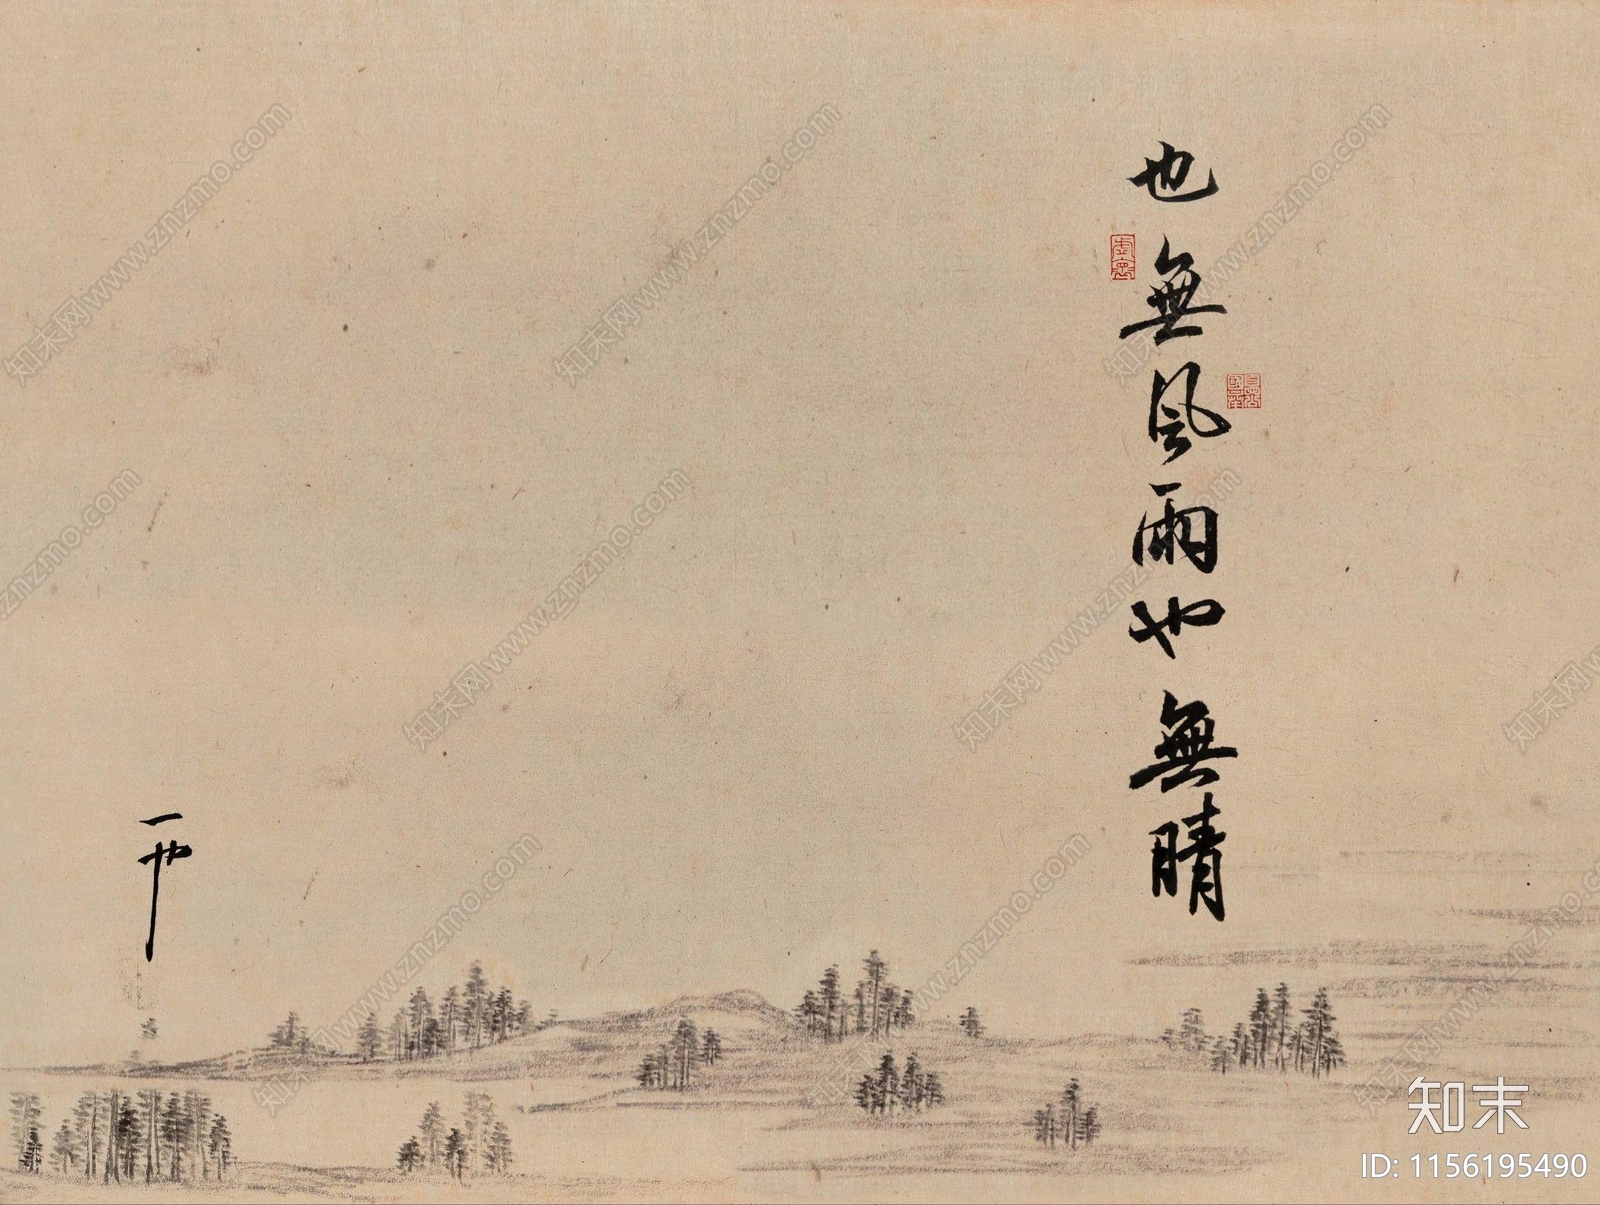 也無風雨也無晴
知末
ID: 1156195490
知末网www.znzmo.com